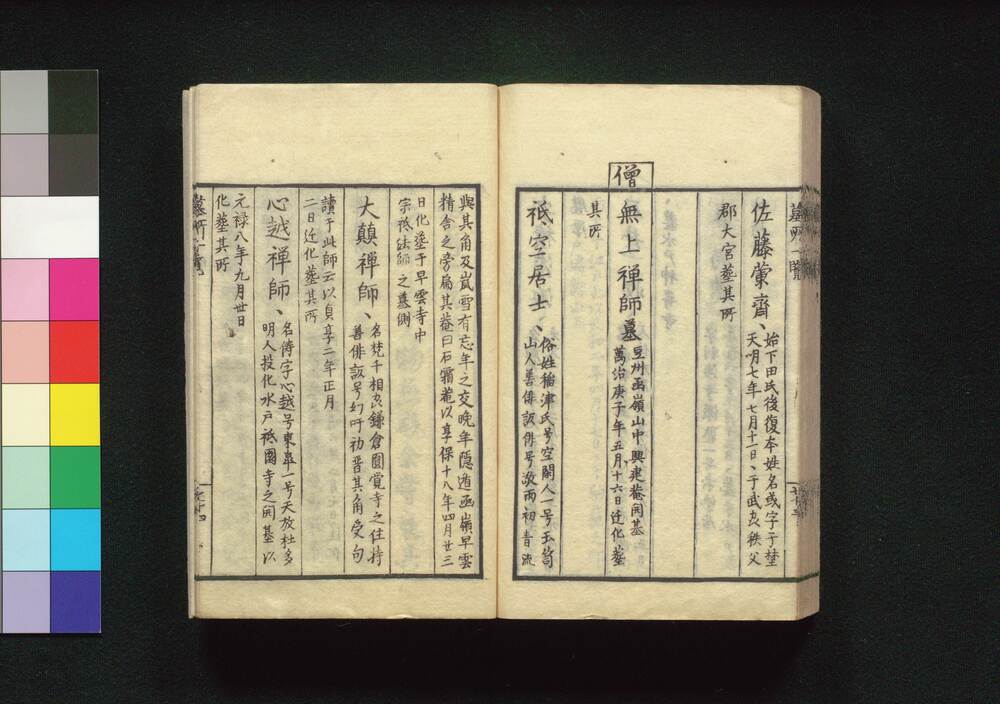 墓所一覧
佐藤蘭齋、始下田氏後復本姓名或字子埜
天明七年七月十一日、于武刕秩父
郡大宮葬其所
僧
無上禅師墓 豆州函嶺山中興建菴開基
萬治庚子年五月十六日迁化葬
其所
祇空居士、俗姓稲津氏号空閑人一号玉笥
山人善俳諧俳号敬雨初青流
與其角及嵐雪有忘年之交晩年隠遁函嶺早雲
精舎之旁扁其菴曰石霜菴以享保十八年四月廿三
日化葬于早雲寺中
宗祇法師之墓側
大顛禅師、名梵千相刕鎌倉圓覚寺之住持
善俳諧号幻吁初晋其角受句
讀于此師云以貞享二年正月
二日迁化葬其所
心越禅師、名儔字心越号東皐一号天放杜多
明人投化水戸祇園寺之開基以
元禄八年九月廿日
化葬其所
墓所一覧